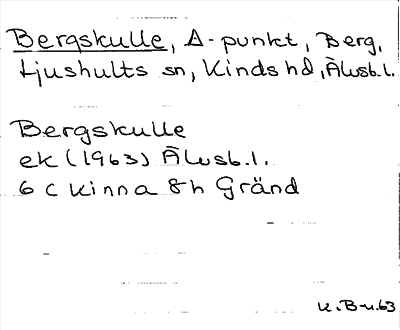 Bergskulle, Δ-punkt, Berg,
Ljushults sn, Kinds hd, Älvsb.l.
Bergskulle
ek (1963) Älvsb.l.
6 C Kinna 8h Gränd
K.B-n.63